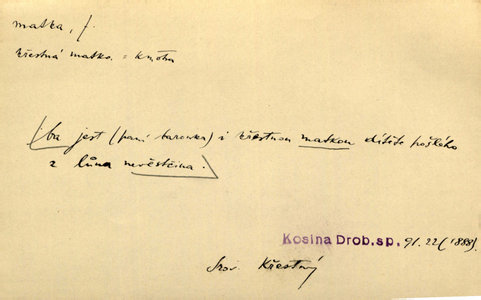 matka, f.
křestná matka = kmotra
(ba jest (paní baronka) i křestnou matkou dítěte pošlého
z lůna nevěstčina.)
Kosina Drob. sp. 91. 22 (1888).
Srov. Křestný